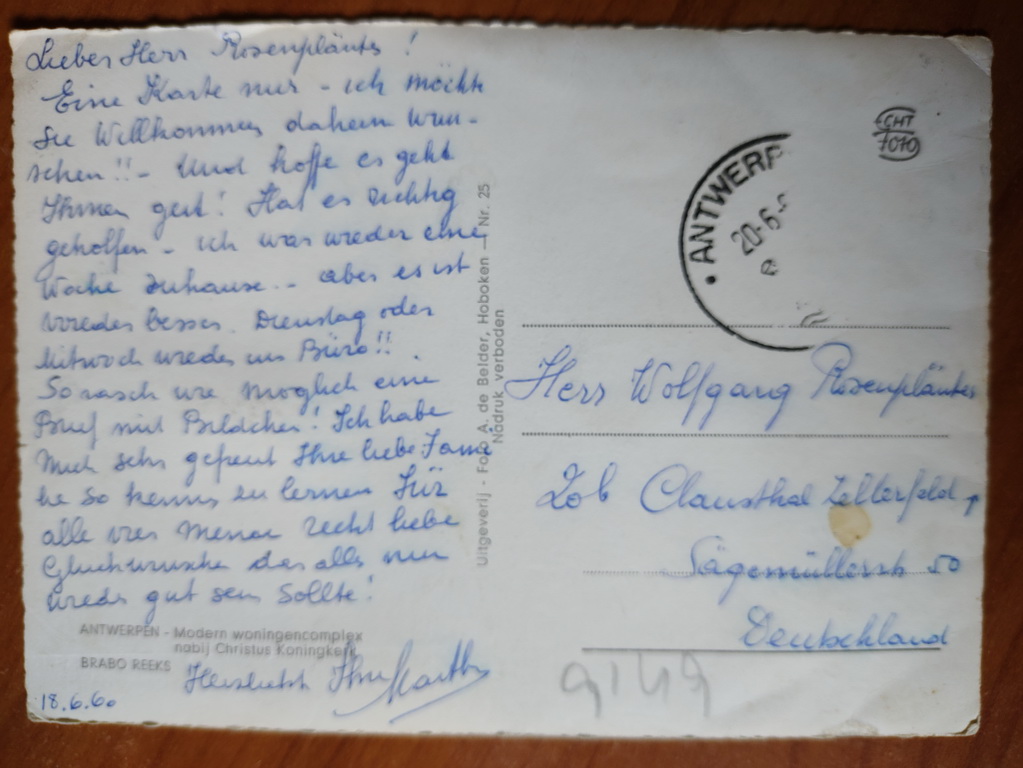 Lieber Herr Rosenpläntes!
Eine Karte nur - ich möchte
Sie Willkommen daheim wün-
schen!! - Und hoffe es geht
Ihnen gut! Hat es richtig
geholfen - ich war wieder eine
Woche zuhause - aber es ist
wieder besser. Dienstag oder
Mitwoch wieder ins Büro!!
So rasch wie möglich eine
Brief mit Bildchen! Ich habe
mich sehr gefreut Ihre liebe Fami
lie so kennen zu lernen Für
alle vier meine recht liebe
Glückwünsche das alles nun
wieder gut sein sollte!
ANTWERPEN - Modern woningencomplex
nabij Christus Koningkerk
BRABO REEKS
Herzlichst Ihre
18.6.60
Uitgeverij - Foto A. de Belder, Hoboken - Nr. 25
Nadruk verboden
CHT
7070
ANTWERP
20-6-
e
Herr Wolfgang Rosenpläntes
20b Clausthal Zellerfeld,
Sägemüllerstr 50
Deutschland